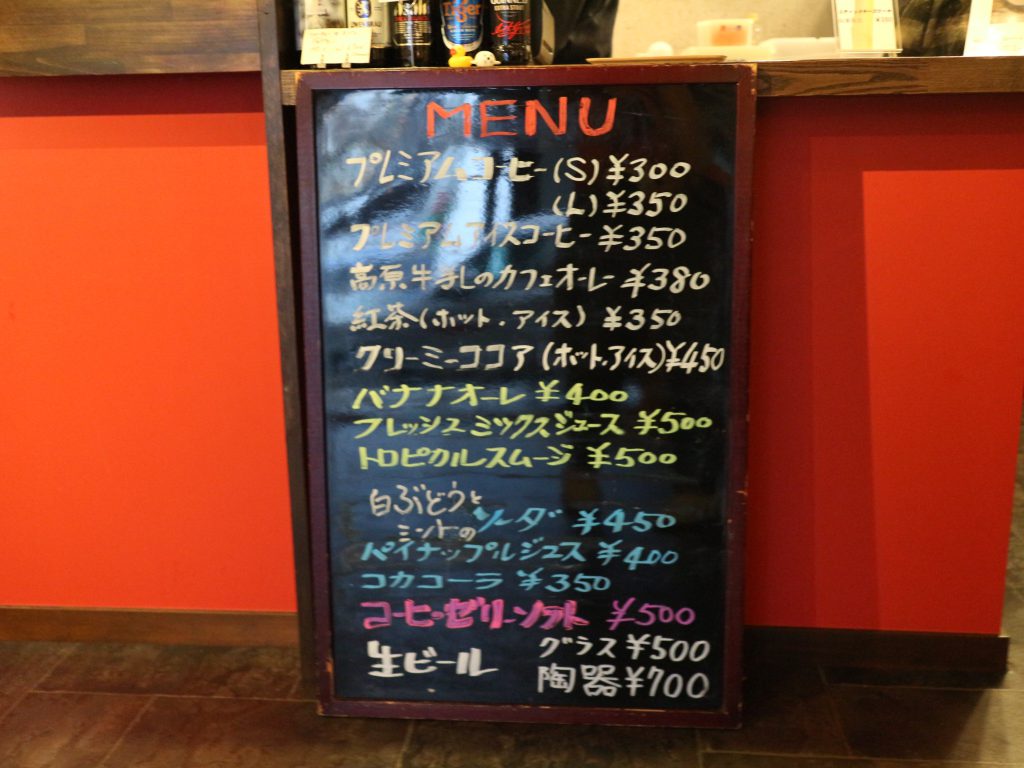 Tiger
GUINNESS
EXTRA STOUT
MENU
プレミアムコーヒー(S)¥300
(L)¥350
プレミアムアイスコーヒー¥350
高原牛乳のカフェオーレ ¥380
紅茶(ホット・アイス) ¥350
クリーミーココア(ホット・アイス)¥450
バナナオーレ ¥400
フレッシュミックスジュース ¥500
トロピカルスムージ ¥500
白ぶどうと
ミントのソーダ ¥450
パイナップルジュース ¥400
コカコーラ ¥350
コーヒーゼリーソフト ¥500
生ビール グラス¥500
陶器¥700